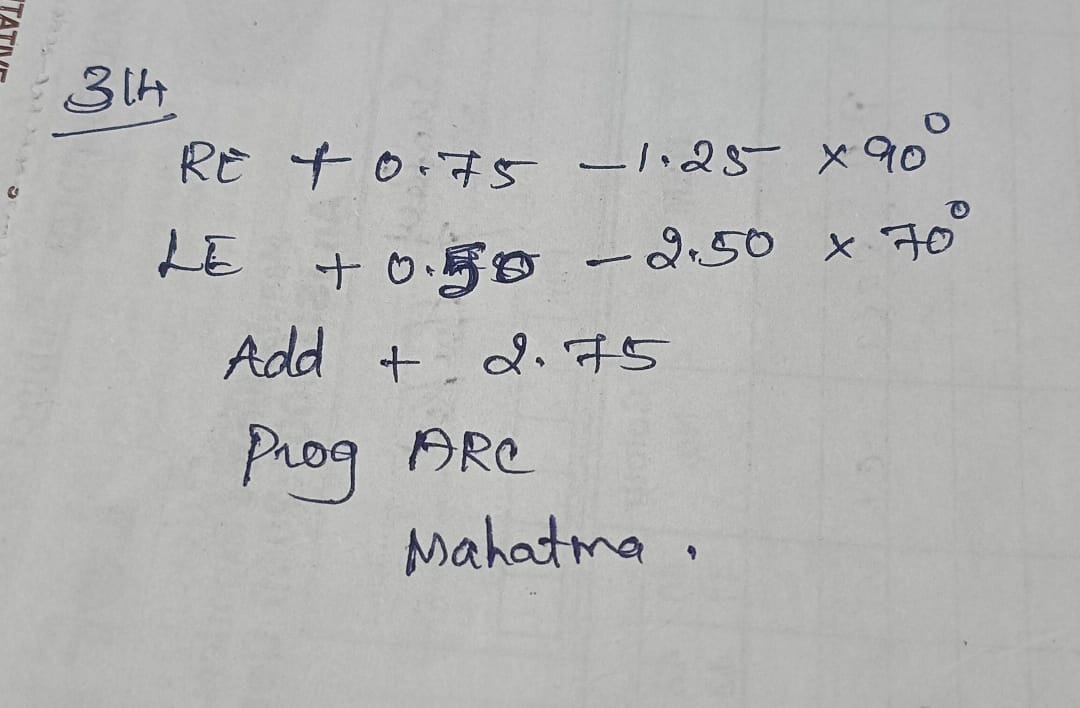 314
RE + 0.75 -1.25 x 90°
LE + 0.50 - 2.50 x 70°
Add + 2.75
Prog ARC
Mahatma.